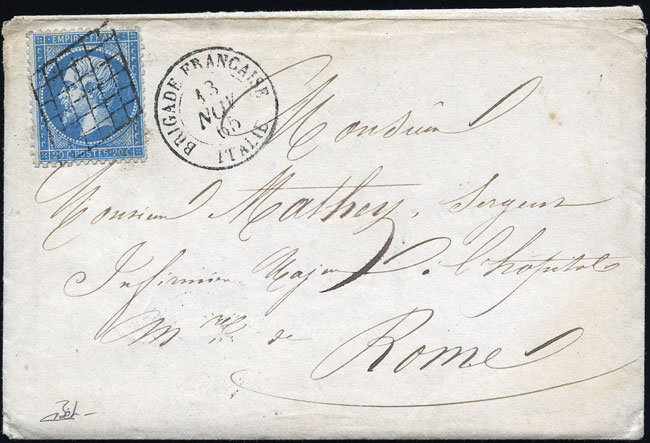 EMPIRE FRANC
20 C POSTES 20 C
BRIGADE FRANÇAISE
13
NOV
65
ITALIE
Monsieur
Monsieur Mathey, Sergent
Infirmier Major à l'hôpital
Mre de
Rome